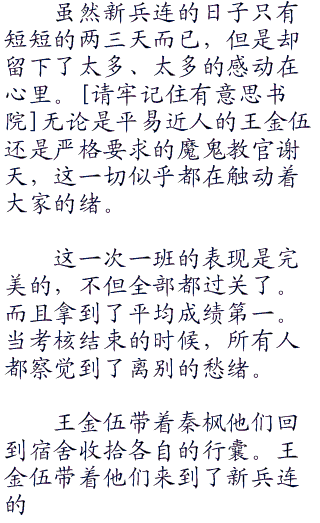 虽然新兵连的日子只有
短短的两三天而已，但是却
留下了太多、太多的感动在
心里。[请牢记住有意思书
院]无论是平易近人的王金伍
还是严格要求的魔鬼教官谢
天，这一切似乎都在触动着
大家的绪。
这一次一班的表现是完
美的，不但全部都过关了。
而且拿到了平均成绩第一。
当考核结束的时候，所有人
都察觉到了离别的愁绪。
王金伍带着秦枫他们回
到宿舍收拾各自的行囊。王
金伍带着他们来到了新兵连
的